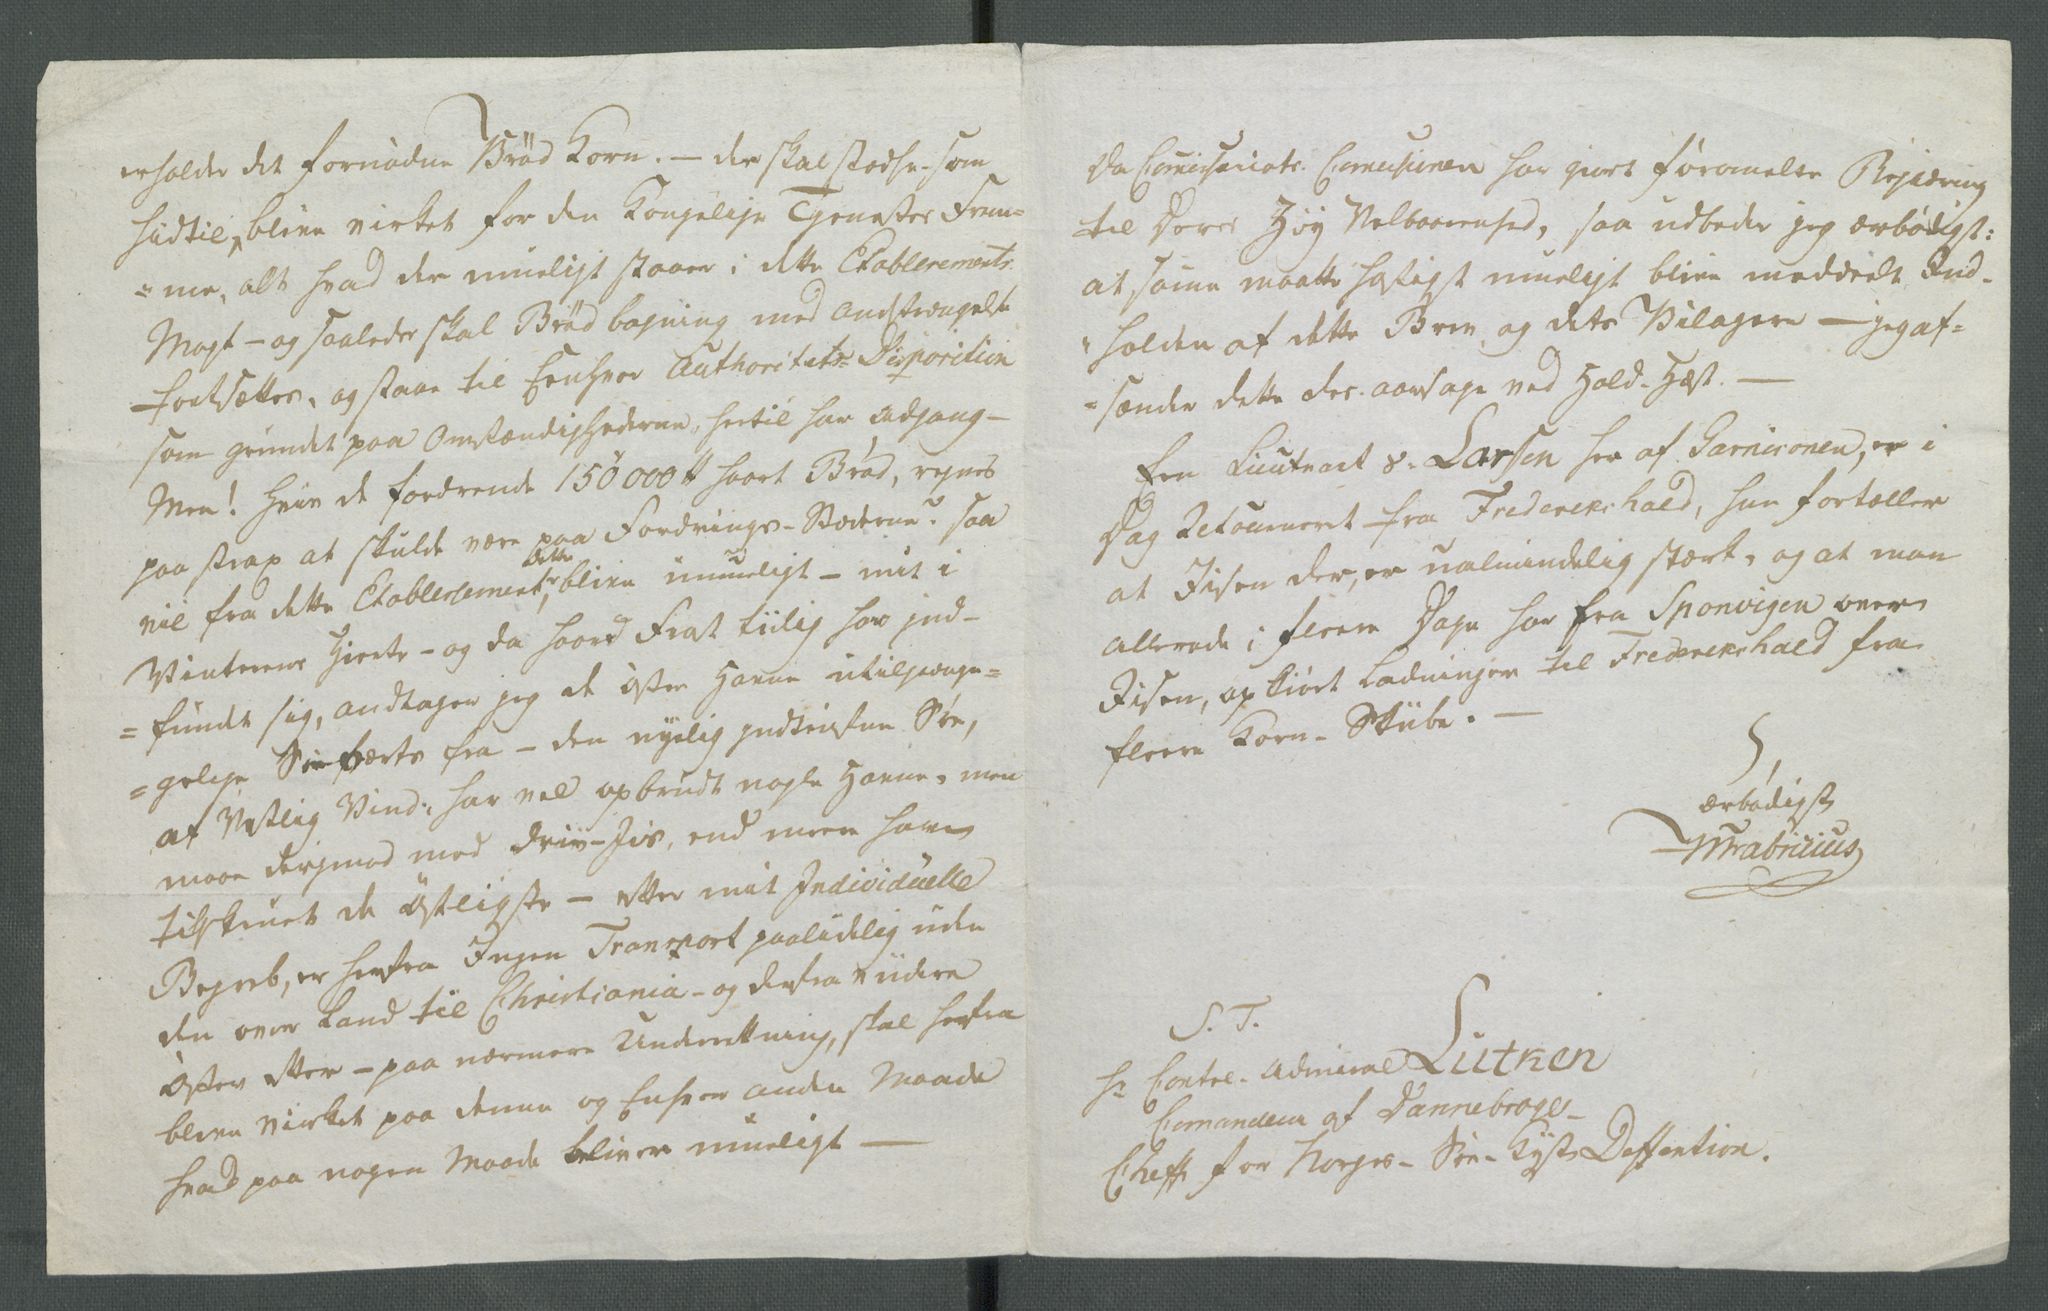 erholde det fornødne Brød Korn. — der skal stedse som
hidtil, blive virket for den Kongelige Tjenestes Frem=
=me, alt hvad der mueligt staaer i dette Etablissements
Magt — og saaledes skal Brød bagning med Anstrængelse
fortsættes, og staae til Enhver Authoritets Disposition
som grundet paa Omstændighederne, hertil har Adgang —
Men! hvis de fordrende 150000 ℔ haart Brød, regnes
paa strax at skulde være paa Fordrings-Stæderne? saa
vil fra dette Etablissement, dette blive umueligt — mit i
Vinterens Hierte — og da haard Frost tidlig har ind-
=fundet sig, andtager jeg de Øster Havne utilgænge=
=gelige Søe værts fra — den nyelig indtrufne Søe,
af Vestlig Vind, har vel opbrudt nogle Havne, men
maae derimod med Driv-Iis, end meere have
tilskruet de Østligste — efter mit Individuelle
Begreb, er herfra Ingen Transport paalidelig uden
den over Land til Christiania — og derfra viidere
Øster efter — paa nærmere Underretning, skal herfra
blive virket paa denne og Enhver anden Maade
hvad paa nogen Maade bliver mueligt —
Da Commissariats Commissionen har giort foromelte Reqvisition
til Deres Høy Velbaarenhed, saa udbeder jeg ærbødigst:
at samme maatte hastigst mueligt blive meddeelt Ind-
=holden af dette Brev, og dets Bilagere — jeg af=
=sender dette des aarsage ved Hold-Hæst. —
Een Lieutnant v. Larssen her af Garnisonen, er i
Dag Retourneret fra Frederikshald, han fortæller
at Iisen der, er ualmindelig stærk, og at man
allerede i fleere Dage har fra Sponvigen over
Iisen, op kiørt Ladninger til Frederikshald fra
fleere Korn-Skibe. —
ærbødigst
Fabricius
S. T.
Hr. Contre-Admiral Lütken
Comandeur af Dannebroge-
Cheff for Norges-Søe-Kyst Deffention.